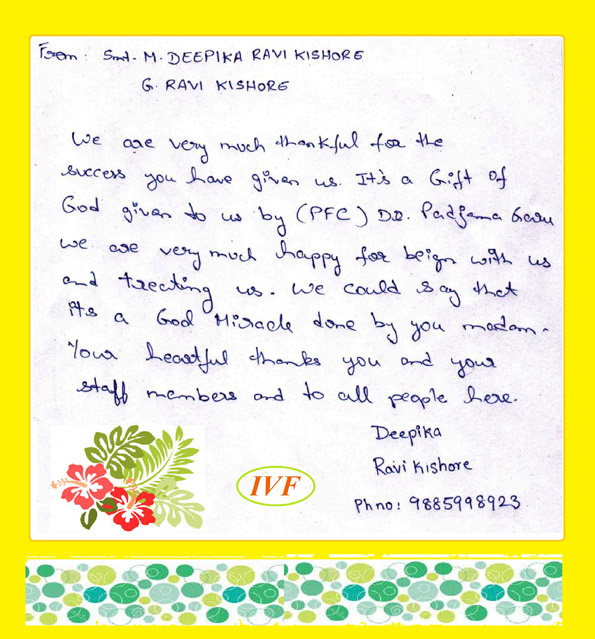 From: Smt. M. DEEPIKA RAVI KISHORE
G. RAVI KISHORE
We are very much thankful for the
success you have given us. It's a Gift Of
God given to us by (PFC) DR. Padjama Garu
we are very much happy for beign with us
and treating us. We could say that
its a God Miracle done by you madam.
Your heartful thanks you and your
staff members and to all people here.
Deepika
Ravi Kishore
IVF
Ph no: 9885998923